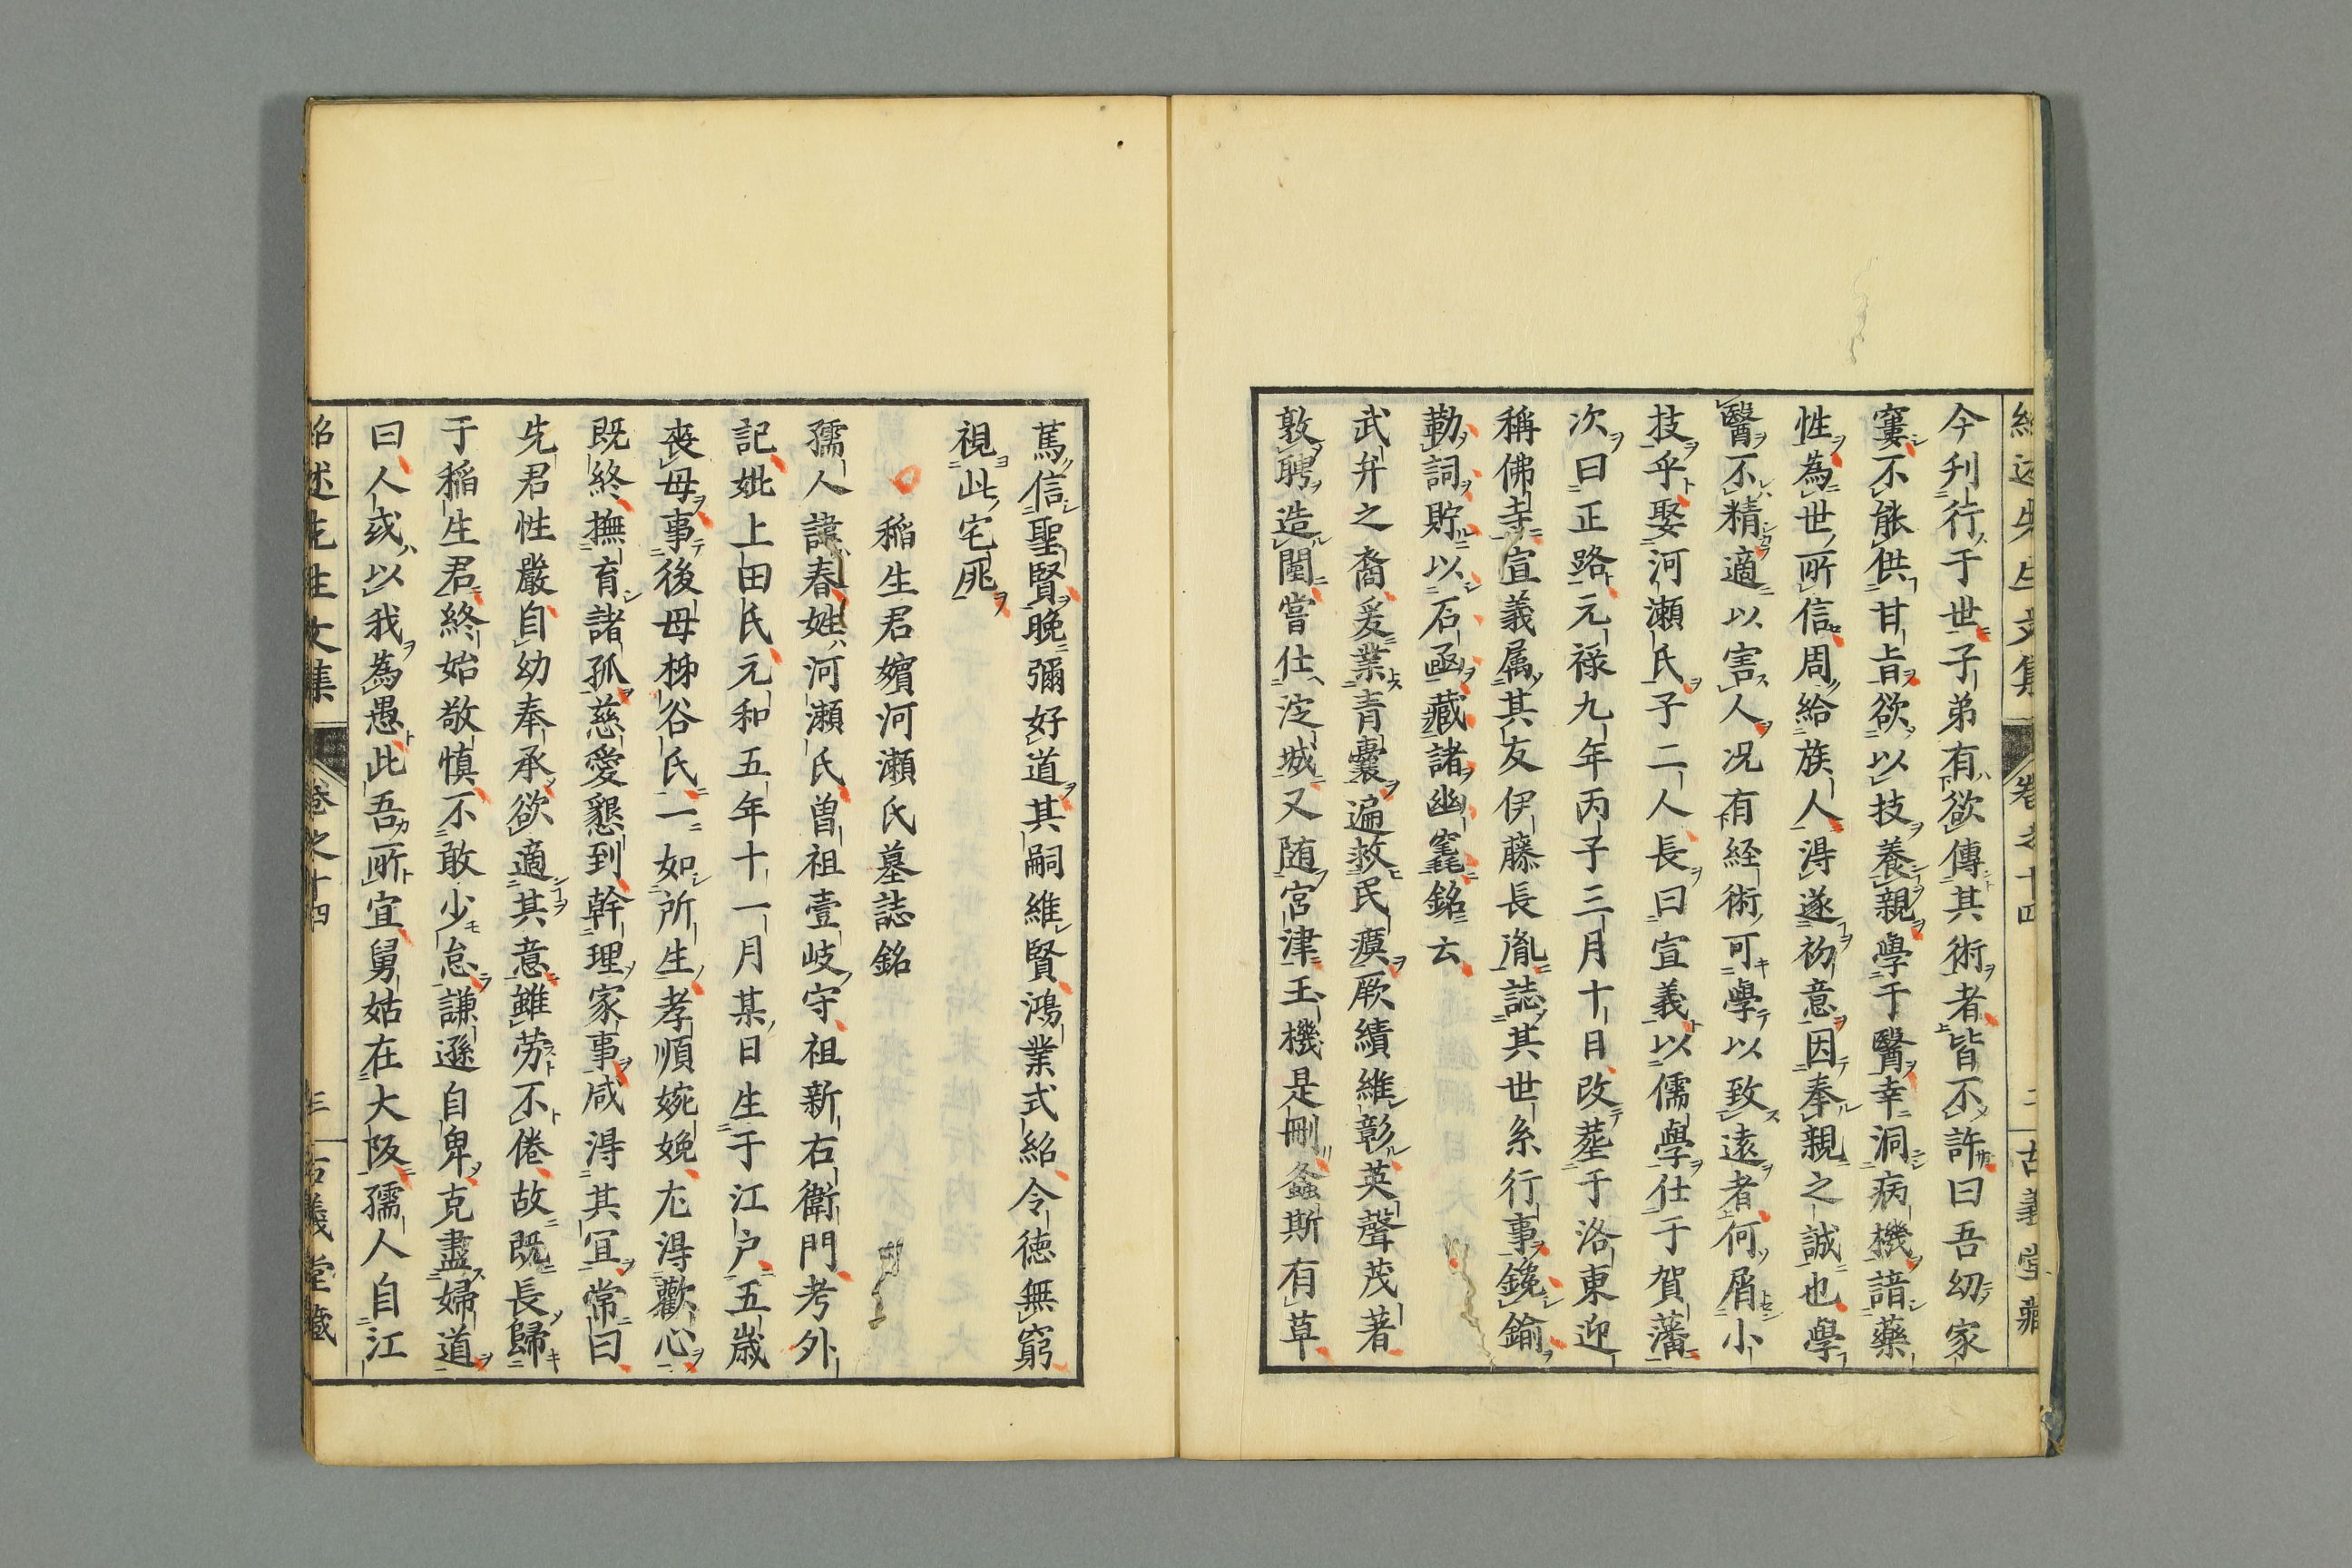 紹述先生文集 卷之十四 二 古義堂藏
今刋行于世子弟有欲傳其術者皆不許曰吾幼家
窶不能供甘旨欲以技養親學于醫幸洞病機諳藥
性為世所信周給族人得遂初意因奉親之誠也學
醫不精適以害人况有経術可學以致遠者何屑小
技乎娶河瀬氏子二人長曰宣義以儒學仕于賀藩
次曰正路元禄九年丙子三月十日改塟于洛東迎
稱佛寺宣義属其友伊藤長胤誌其世系行事鑱鍮
勒詞貯以石凾藏諸幽竁銘云
武弁之裔爰業青囊遍救民瘼厥績維彰英聲茂著
敦聘造閫嘗仕淀城又随宮津玉機是刪螽斯有草
篤信聖賢晚彌好道其嗣維賢鴻業式紹令德無窮
視此宅兆
稲生君嬪河瀬氏墓誌銘
孺人諱春姓河瀬氏曽祖壹岐守祖新右衛門考外
記妣上田氏元和五年十一月某日生于江户五歳
喪母事後母柹谷氏一如所生孝順婉娩尤得歡心
既終撫育諸孤慈愛懇到幹理家事咸得其冝常曰
先君性嚴自幼奉承欲適其意雖劳不倦故既長歸
于稲生君終始敬慎不敢少怠謙遜自卑克盡婦道
曰人或以我為愚此吾所宜舅姑在大阪孺人自江
紹述先生文集 卷之十四 三 古義堂藏